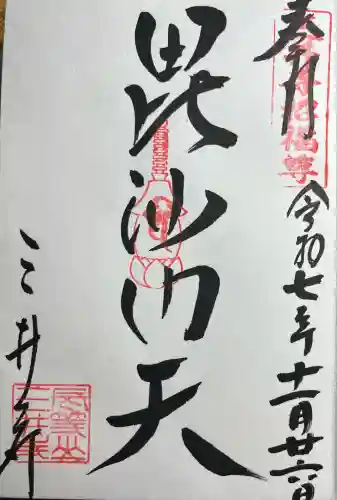 奉拝
令和七年十一月廿六日
毘沙門天
三井寺